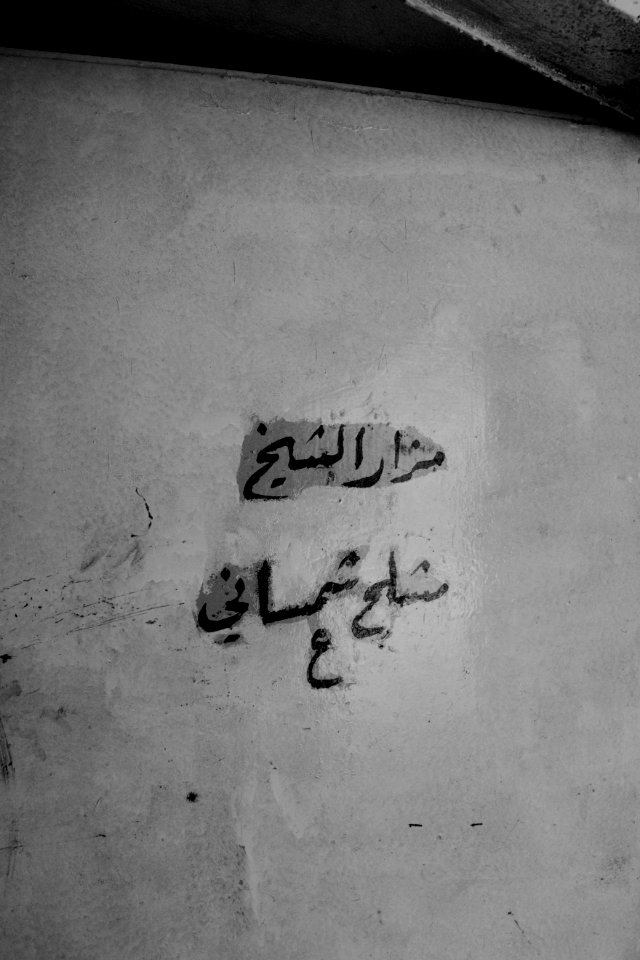 مزار الشيخ
مشلح شمساني
ع